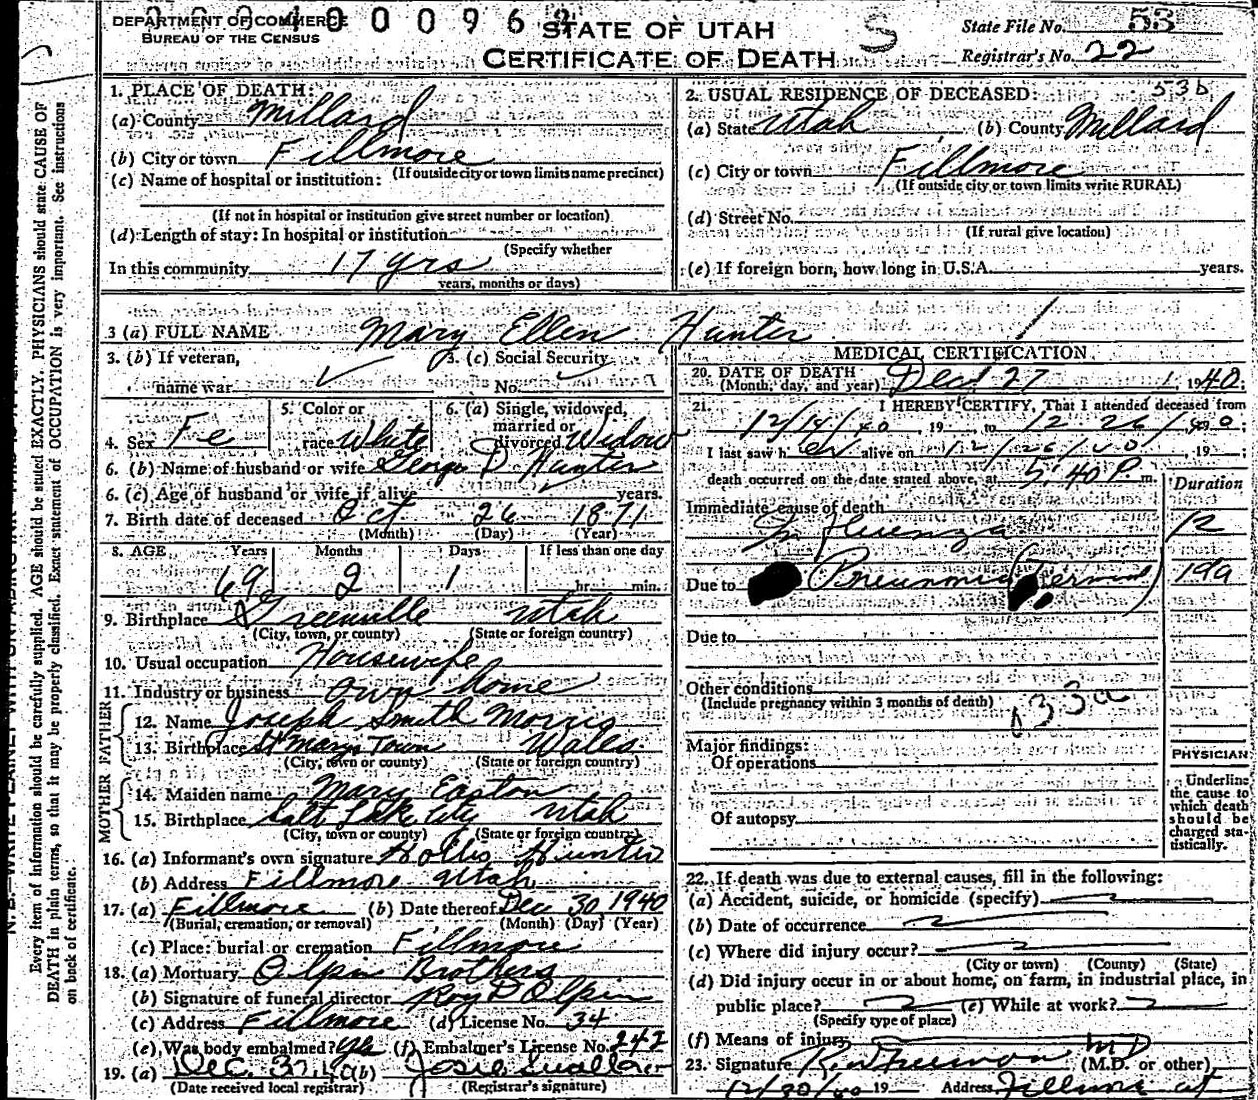 DEPARTMENT OF COMMERCE
BUREAU OF THE CENSUS
STATE OF UTAH
CERTIFICATE OF DEATH
S
State File No. 53
Registrar's No. 22
1. PLACE OF DEATH:
(a) County Millard
(b) City or town Fillmore
(If outside city or town limits name precinct)
(c) Name of hospital or institution:
(If not in hospital or institution give street number or location)
(d) Length of stay: In hospital or institution
(Specify whether
In this community 17 yrs
years, months or days)
2. USUAL RESIDENCE OF DECEASED:
53b
(a) State Utah (b) County Millard
(c) City or town Fillmore
(If outside city or town limits write RURAL)
(d) Street No.
(If rural give location)
(e) If foreign born, how long in U.S.A. years.
3 (a) FULL NAME Mary Ellen Hunter
3. (b) If veteran,
name war
3. (c) Social Security
No.
4. Sex Fe
5. Color or
race White
6. (a) Single, widowed,
married or
divorced Widow
6. (b) Name of husband or wife George D Hunter
6. (c) Age of husband or wife if alive years.
7. Birth date of deceased Oct 26 1871
(Month) (Day) (Year)
8. AGE Years Months Days If less than one day
69 2 1 hr. min.
9. Birthplace Greenville Utah
(City, town, or county) (State or foreign country)
10. Usual occupation Housewife
11. Industry or business own home
FATHER
12. Name Joseph Smith Morris
13. Birthplace St Marys Town Wales
(City, town or county) (State or foreign country)
MOTHER
14. Maiden name Mary Easton
15. Birthplace Salt Lake City Utah
(City, town or county) (State or foreign country)
16. (a) Informant's own signature Hollis Hunter
(b) Address Fillmore Utah
17. (a) Fillmore (b) Date thereof Dec 30 1940
(Burial, cremation, or removal) (Month) (Day) (Year)
(c) Place: burial or cremation Fillmore
18. (a) Mortuary Olpin Brothers
(b) Signature of funeral director Roy P Olpin
(c) Address Fillmore (d) License No. 34
(e) Was body embalmed? yes (f) Embalmer's License No. 242
19. (a) Dec. (b) Josie
(Date received local registrar) (Registrar's signature)
MEDICAL CERTIFICATION
20. DATE OF DEATH
(Month, day, and year) Dec 27 1940
21. I HEREBY CERTIFY, That I attended deceased from
12/14/40, 19 to 12/26/40
I last saw her alive on 12/26/40, 19 ;
death occurred on the date stated above, at 5:40 P. m.
Duration
Immediate cause of death
Influenza
Due to Pneumonia (terminal)
Due to
Other conditions
(Include pregnancy within 3 months of death)
33a
Major findings:
Of operations
Of autopsy
PHYSICIAN
Underline
the cause to
which death
should be
charged sta-
tistically.
22. If death was due to external causes, fill in the following:
(a) Accident, suicide, or homicide (specify)
(b) Date of occurrence
(c) Where did injury occur?
(City or town) (County) (State)
(d) Did injury occur in or about home, on farm, in industrial place, in
public place? (e) While at work?
(Specify type of place)
(f) Means of injury
23. Signature MD (M.D. or other)
12/30/40 19 Address Fillmore ut
Every item of information should be carefully supplied. AGE should be stated EXACTLY. PHYSICIANS should state CAUSE OF
DEATH in plain terms, so that it may be properly classified. Exact statement of OCCUPATION is very important. See instructions
on back of certificate.